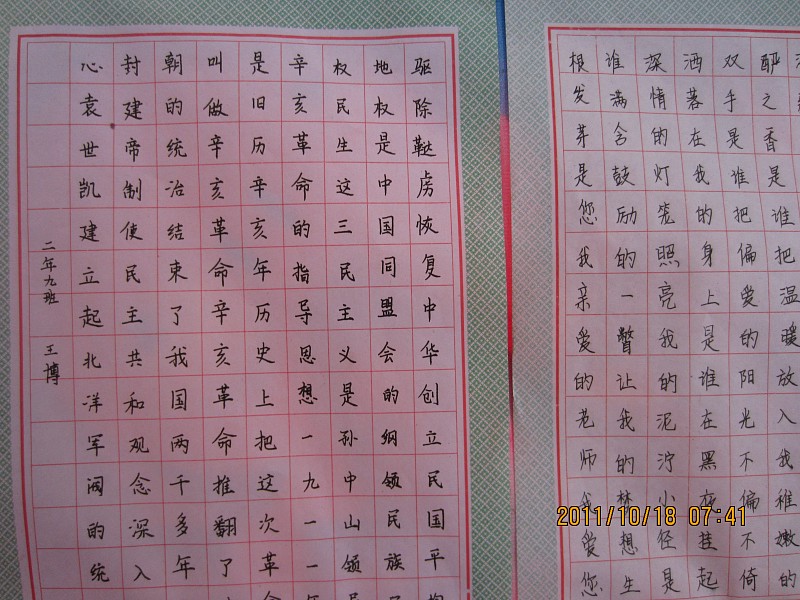 驱除鞑虏恢复中华创立民国平
地权是中国同盟会的纲领民族
权民生这三民主义是孙中山领
辛亥革命的指导思想一九一一
是旧历辛亥年历史上把这次革
叫做辛亥革命辛亥革命推翻了
朝的统治结束了我国两千多年
封建帝制使民主共和观念深入
心袁世凯建立起北洋军阀的统
二年九班 王博
酽之香是谁把温暖放入我稚嫩的
双手是谁把偏爱的阳光不偏不倚
洒落在我的身上是谁在黑夜挂起
深情的灯笼照亮我的泥泞小径是
谁满含鼓励的一瞥让我的梦想生
根发芽是您我亲爱的老师我爱您
2011/10/18 07:41